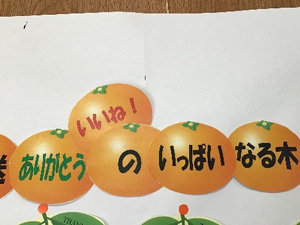 いいね！
ありがとう の いっぱい なる木